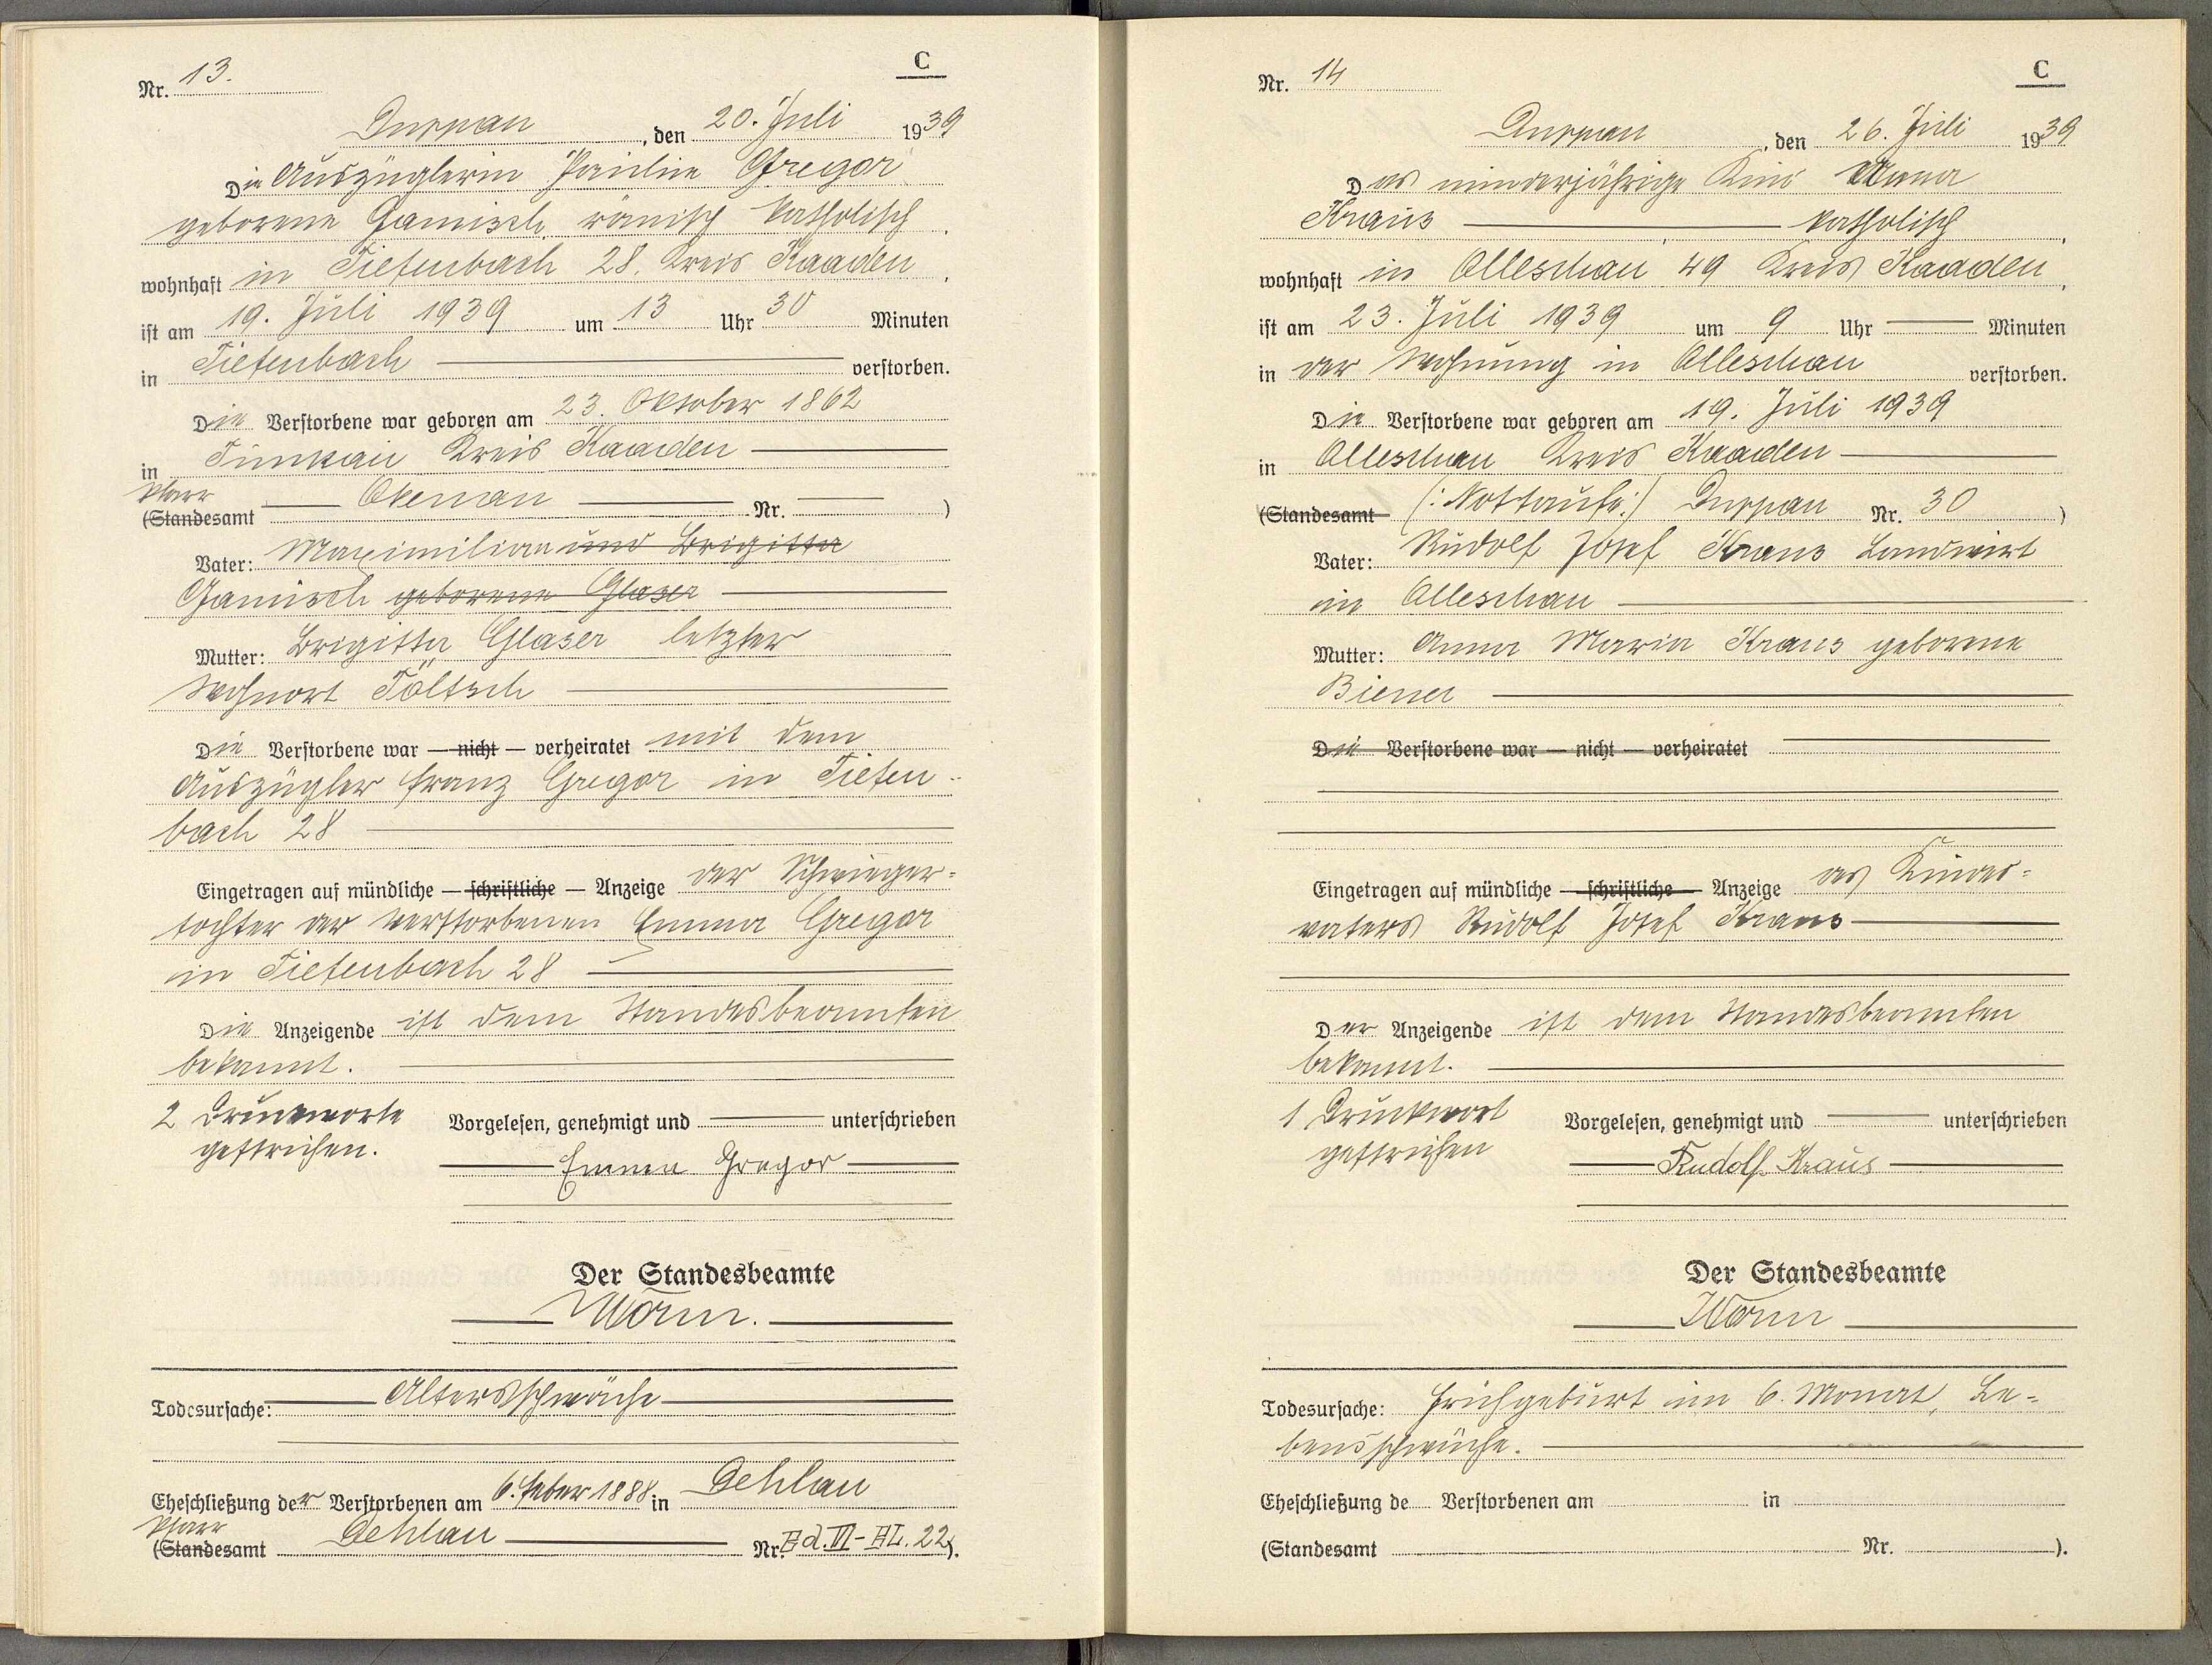 C
Nr. 13.
Duppau, den 20. Juli 1939
Die Auszüglerin Pauline Gregor
geborene Gamisch, römisch katholisch,
wohnhaft in Tiefenbach 28. Kreis Kaaden,
ist am 19. Juli 1939 um 13 Uhr 30 Minuten
in Tiefenbach verstorben.
Die Verstorbene war geboren am 23. Oktober 1862
in Tunkau Kreis Kaaden
Pfarr
(Standesamt Okenau Nr. )
Vater: Maximilian und Brigitta
Gamisch geborene Glaser
Mutter: Brigitta Glaser letzter
Wohnort Töltsch
Die Verstorbene war — nicht — verheiratet mit dem
Auszügler Franz Gregor in Tiefen-
bach 28
Eingetragen auf mündliche — schriftliche — Anzeige der Schwieger=
tochter der Verstorbenen Emma Gregor
in Tiefenbach 28
Die Anzeigende ist dem Standesbeamten
bekannt.
2 Druckworte
gestrichen.
Vorgelesen, genehmigt und unterschrieben
Emma Gregor
Der Standesbeamte
Worm.
Todesursache: Altersschwäche
Eheschließung der Verstorbenen am 6. Feber 1888 in Dehlau
Pfarr
(Standesamt Dehlau Nr. Bd. VI - BL. 22).
C
Nr. 14
Duppau, den 26. Juli 1939
Das minderjährige Kind Anna
Kraus katholisch,
wohnhaft in Olleschau 49 Kreis Kaaden,
ist am 23. Juli 1939 um 9 Uhr Minuten
in der Wohnung in Olleschau verstorben.
Die Verstorbene war geboren am 19. Juli 1939
in Olleschau Kreis Kaaden
(Standesamt (: Nottaufe :) Duppau Nr. 30 )
Vater: Rudolf Josef Kraus Landwirt
in Olleschau
Mutter: Anna Maria Kraus geborene
Biener
Die Verstorbene war — nicht — verheiratet
Eingetragen auf mündliche — schriftliche — Anzeige des Kindes=
vaters Rudolf Josef Kraus
Der Anzeigende ist dem Standesbeamten
bekannt.
1 Druckwort
gestrichen
Vorgelesen, genehmigt und unterschrieben
Rudolf Kraus
Der Standesbeamte
Worm
Todesursache: Frühgeburt im 6. Monat, Le=
bensschwäche.
Eheschließung de Verstorbenen am in
(Standesamt Nr. ).